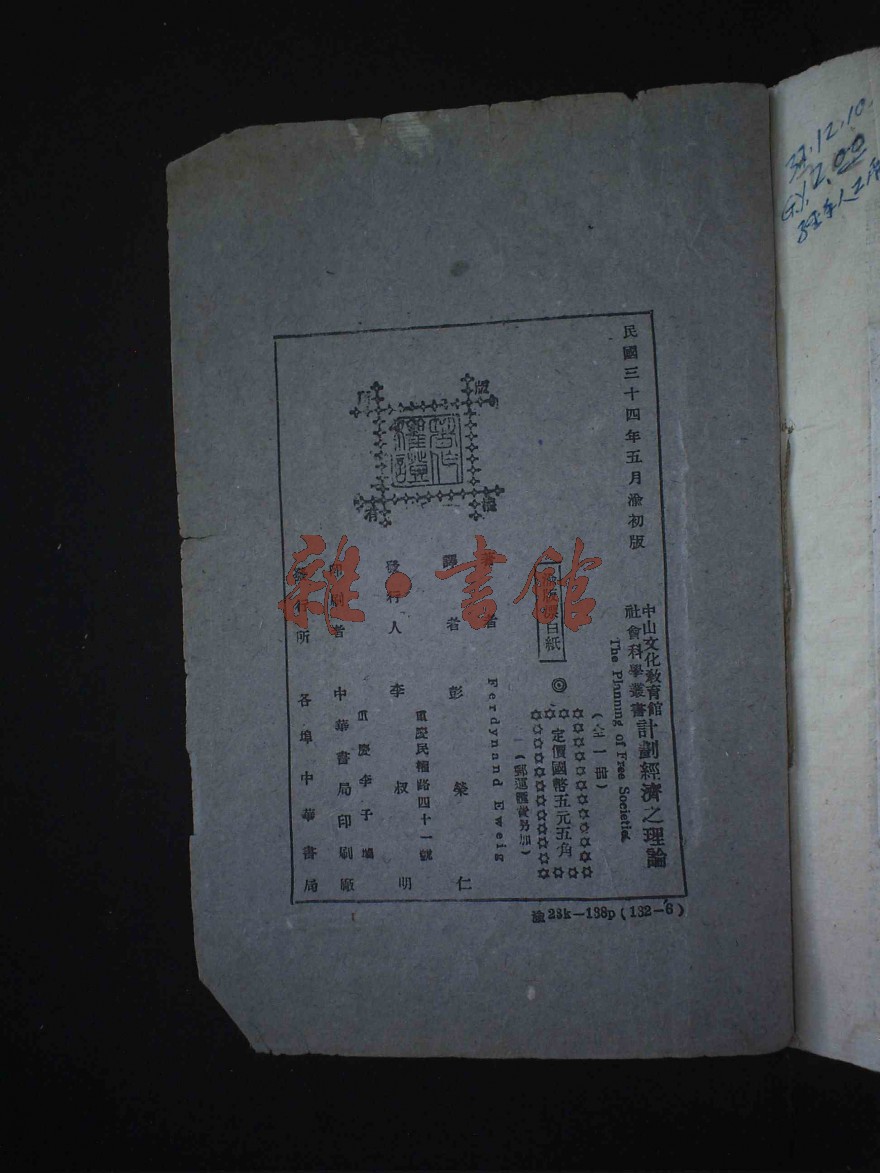 民國三十四年五月渝初版
中山文化教育館
社會科學叢書
計劃經濟之理論
The Planning of Free Societies
(全一冊)
定價國幣五元五角
(郵運匯費另加)
著者 Ferdynand Zweig
譯者 彭榮仁
發行人 李叔明
重慶民權路四十一號
印刷者 中華書局印刷廠
重慶李子壩
發行所 各埠中華書局
版權所有
渝23k—138p(132—6)
雜·書館
12.10